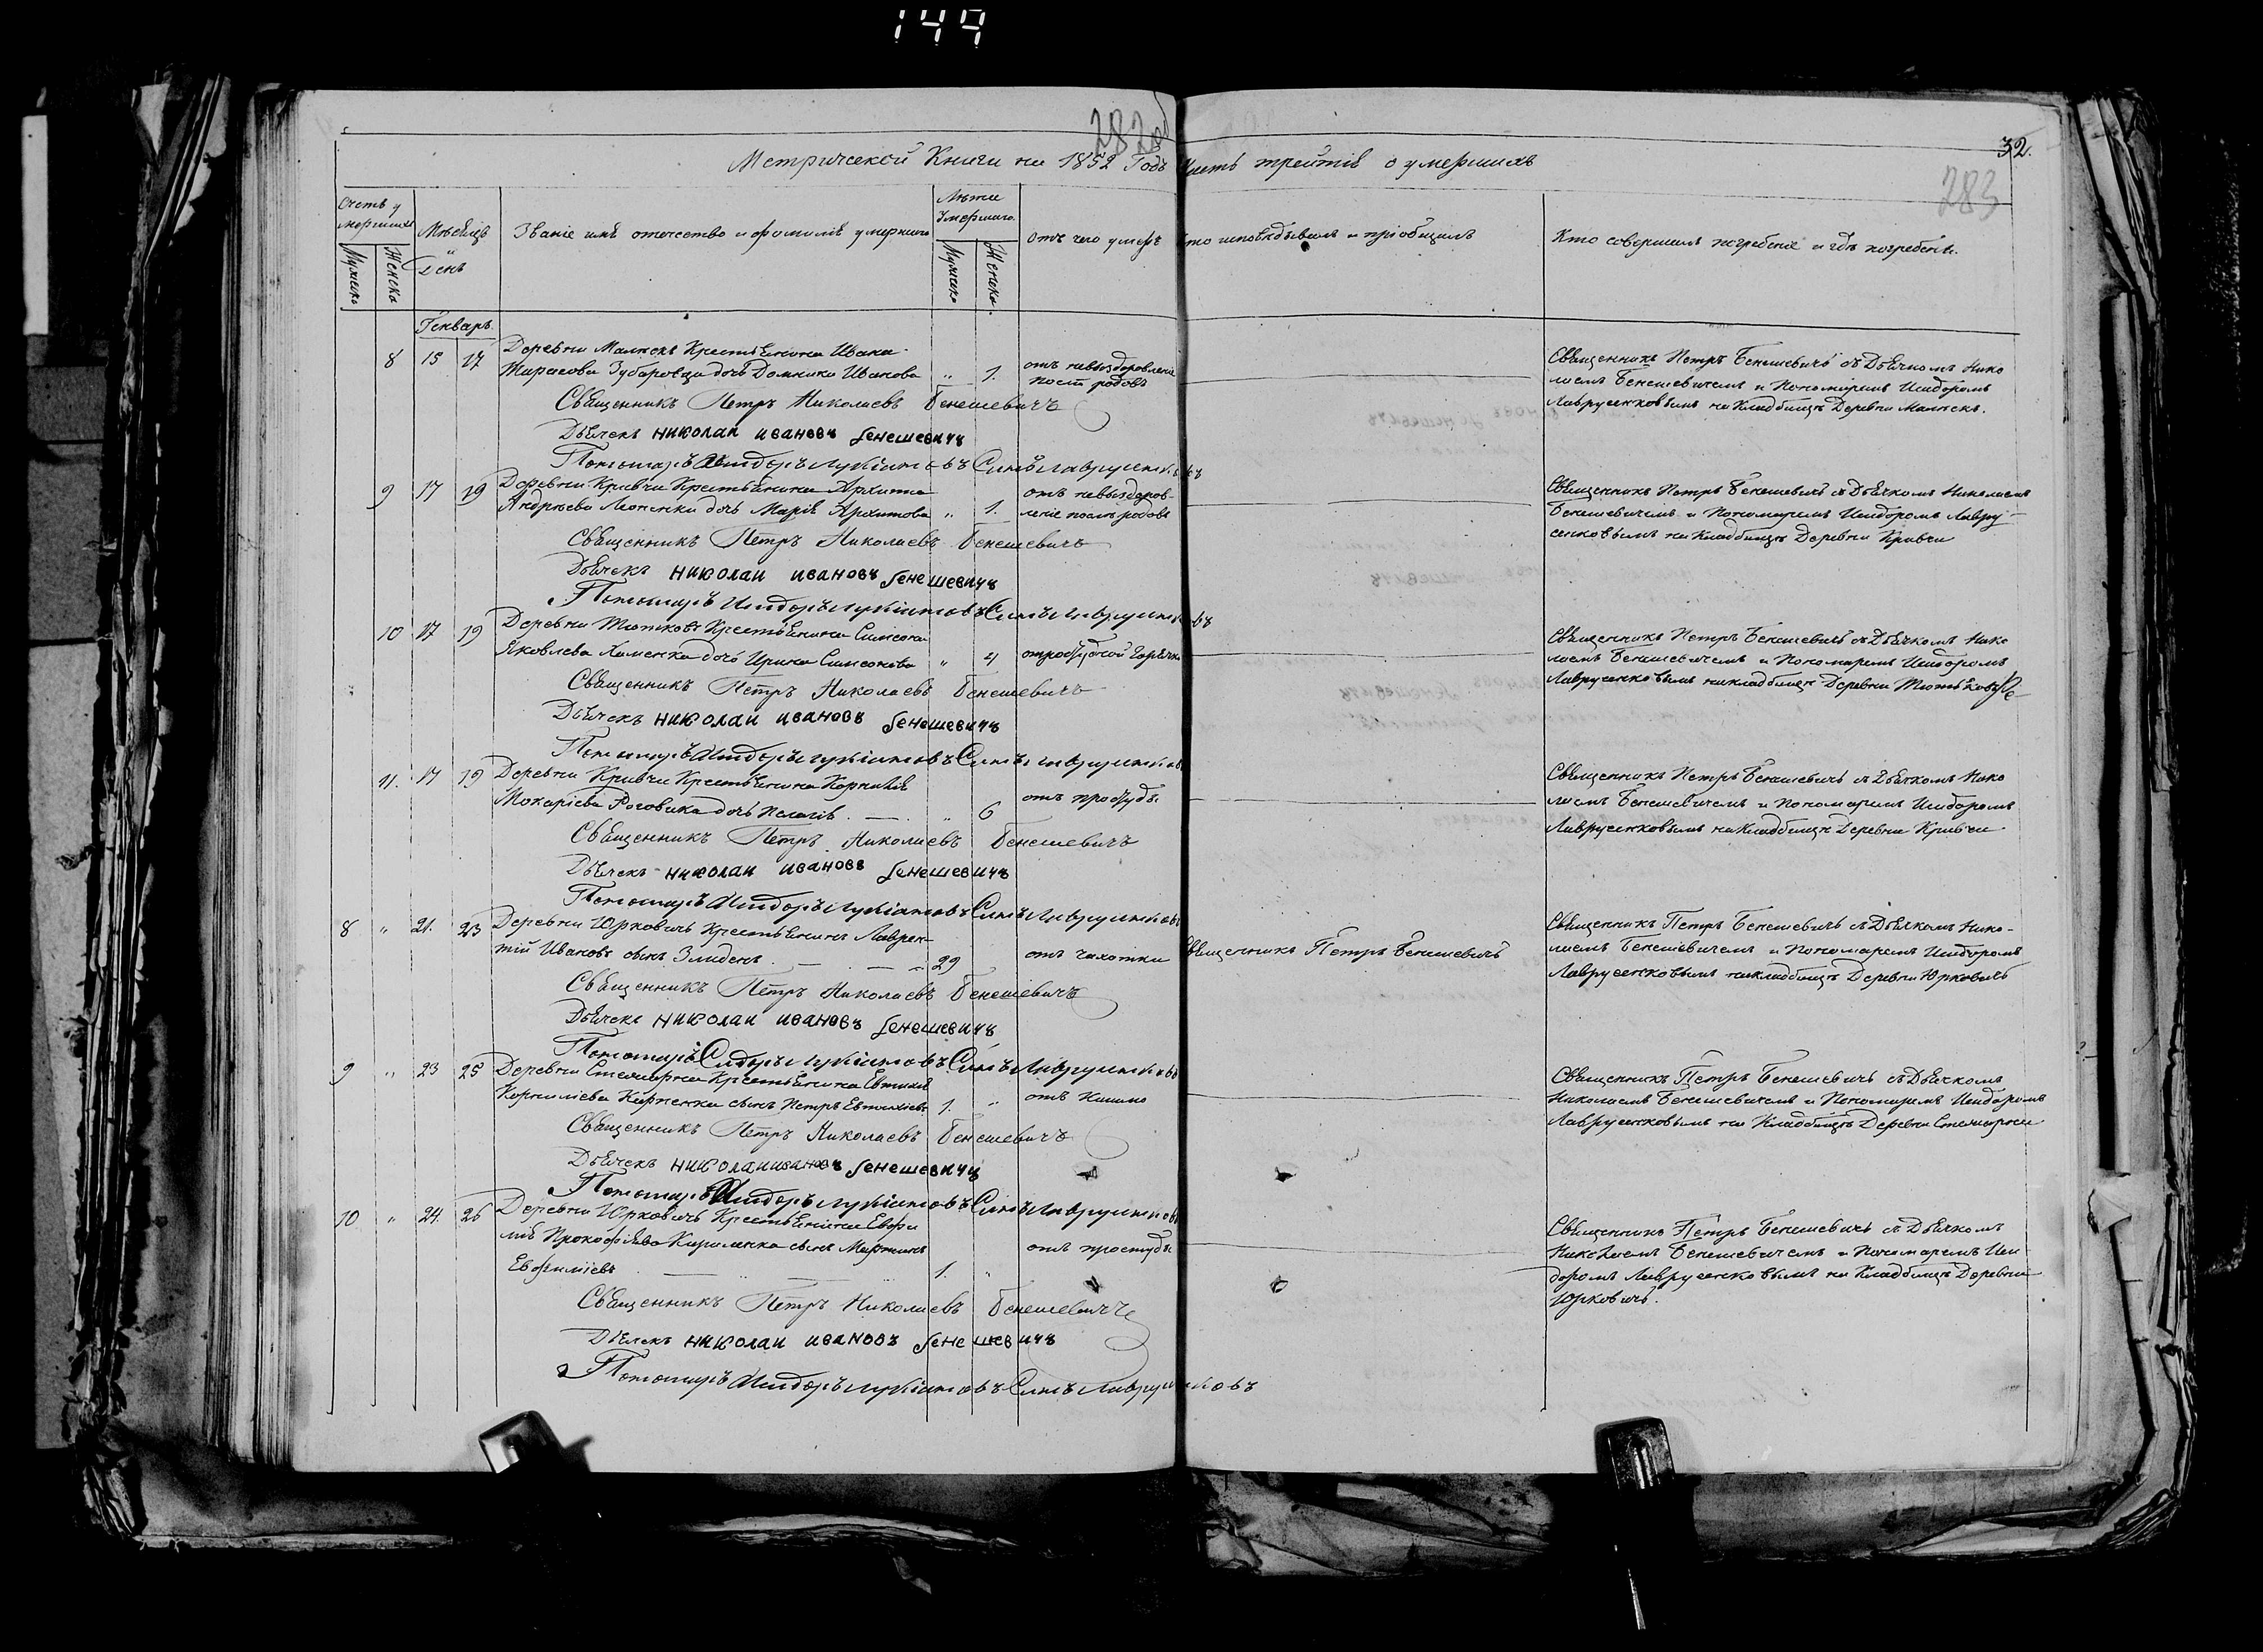 149
282об
32.
283
Метрической Книги на 1852 Годъ Часть третія о умершихъ
Счетъ у
мершихъ
Мужеска
Женска
Мѣсяцъ
и
День
Званіе имя отечество и фамилія умершаго
Лѣта
Умершаго.
Мужеска
Женска
Отъ чего умеръ
Кто исповѣдывалъ и пріобщалъ
Кто совершалъ погребеніе и гдѣ погребенъ.
Генварь.
8 15 17 Деревни Крестьянина Ивана
Тарасова дочь Домника Иванова „ 1. отъ невыздоровленія
послѣ родовъ
Священникъ Петръ Бенешевичь съ Дьячкомъ Нико
лаемъ Бенешевичемъ и Пономаремъ Исидоромъ
Лаврусенковымъ на Кладбищѣ Деревни
Священникъ Петръ Николаевъ Бенешевичъ
Дьячекъ николаи ивановъ бенешевичъ
Пономарь Исидоръ Лукіановъ Сынъ Лаврусенковъ
9 17 19 Деревни Кривчи Крестьянина Архипа
Андреева дочь Марія Архипова „ 1. отъ невыздоров-
ленія послѣ родовъ
Священникъ Петръ Бенешевичь съ Дьячкомъ Николаемъ
Бенешевичемъ и Пономаремъ Исидоромъ Лавру
сенковымъ на Кладбищѣ Деревни Кривчи
Священникъ Петръ Николаевъ Бенешевичъ
Дьячекъ николаи ивановъ бенешевичъ
Пономарь Исидоръ Лукіановъ Сынъ Лаврусенковъ
10 17 19 Деревни Крестьянина Симеона
Яковлева Хоменка дочь Ирина Симеонова „ 4 отъ простудной Горячки
Священникъ Петръ Бенешевичь съ Дьячкомъ Нико
лаемъ Бенешевичемъ и Пономаремъ Исидоромъ
Лаврусенковымъ на кладбищѣ Деревни
Священникъ Петръ Николаевъ Бенешевичъ
Дьячекъ николаи ивановъ бенешевичъ
Пономарь Исидоръ Лукіановъ Сынъ Лаврусенковъ
11. 17 19 Деревни Кривчи Крестьянина Корнилія
Макаріева Роговика дочь Пелагія „ 6 отъ простуды
Священникъ Петръ Бенешевичь съ Дьячкомъ Нико
лаемъ Бенешевичемъ и Пономаремъ Исидоромъ
Лаврусенковымъ на Кладбищѣ Деревни Кривчи
Священникъ Петръ Николаевъ Бенешевичъ
Дьячекъ николаи ивановъ бенешевичъ
Пономарь Исидоръ Лукіановъ Сынъ Лаврусенковъ
8 „ 21. 23 Деревни Юрковичь Крестьянинъ Лаврен-
тій Ивановъ сынъ Злиденъ 29 отъ чахотки Священникъ Петръ Бенешевичъ
Священникъ Петръ Бенешевичь съ Дьячкомъ Нико-
лаемъ Бенешевичемъ и Пономаремъ Исидоромъ
Лаврусенковымъ на кладбищѣ Деревни Юрковичь
Священникъ Петръ Николаевъ Бенешевичъ
Дьячекъ николаи ивановъ бенешевичъ
Пономарь Сидоръ Лукіановъ Сынъ Лаврусенковъ
9 „ 23 25 Деревни Крестьянина Евтихія
Корнилієва Карпенка сынъ Петръ Евтихіевъ 1. „ отъ Кашлю
Священникъ Петръ Бенешевичь съ Дьячкомъ
Николаемъ Бенешевичемъ и Пономаремъ Исидоромъ
Лаврусенковымъ на Кладбищѣ Деревни
Священникъ Петръ Николаевъ Бенешевичъ
Дьячекъ николаи ивановъ бенешевичъ
Пономарь Исидоръ Лукіановъ Сынъ Лаврусенковъ
10 „ 24. 26 Деревни Юрковичь Крестьянина Евфи
мія Прокофіева Кириленка сынъ Мартинъ
Евфиміевъ 1. „ отъ простуды
Священникъ Петръ Бенешевичь съ Дьячкомъ
Николаемъ Бенешевичемъ и Пономаремъ Иси
доромъ Лаврусенковымъ на Кладбищѣ Деревни
Юрковичь.
Священникъ Петръ Николаевъ Бенешевичъ
Дьячекъ николаи ивановъ бенешевичъ
Пономарь Исидоръ Лукіановъ Сынъ Лаврусенковъ